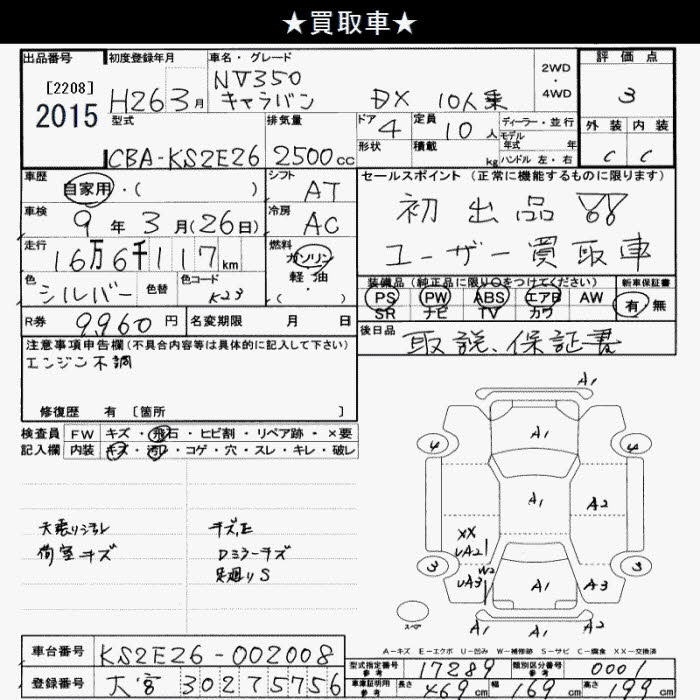 ★買取車★
出品番号 初度登録年月 車名・グレード 評価点
[2208] NV350 2WD ・ 4WD
2015 H26 3月 キャラバン DX 10人乗 3
型式 排気量 ドア 定員 ディーラー・並行 外装 内装
4 10人 モデル年式 年
CBA-KS2E26 2500cc 形状 積載 kg ハンドル 左・右 C C
車歴 シフト セールスポイント(正常に機能するものに限ります)
自家用・( ) AT 初出品
車検 冷房
9年3月(26日) AC ユーザー買取車
走行 燃料
16万6千117km ガソリン
色 色替 色コード 軽油 装備品(純正品に限り○をつけてください) 新車保証書
シルバー K23 ( ) PS PW ABS エアB AW 有 無
SR ナビ TV カワ
R券 9,960円 名変期限 月 日 後日品
取説、保証書
注意事項申告欄(不具合内容等は具体的に記入して下さい)
エンジン不調
修復歴 有 [箇所 ]
検査員 FW キズ・飛石・ヒビ割・リペア跡・×要
記入欄 内装 キズ・汚レ・コゲ・穴・スレ・キレ・破レ
天張りシミ キズ、E
荷室キズ Dミラーキズ
足廻りS
A1
A1
4 4
A1 A2
XX
UA2
3 W2 3
UA3 A1 A3
スペア A1 A1
A-キズ E-エクボ U-凹み W-補修跡 S-サビ C-腐食 XX-交換済
車台番号 KS2E26-002008
型式指定番号 参考 17289 類別区分番号 参考 0001
登録番号 大宮 302 75756
車庫証明用 参考 長さ 469cm 幅 169cm 高さ 199cm